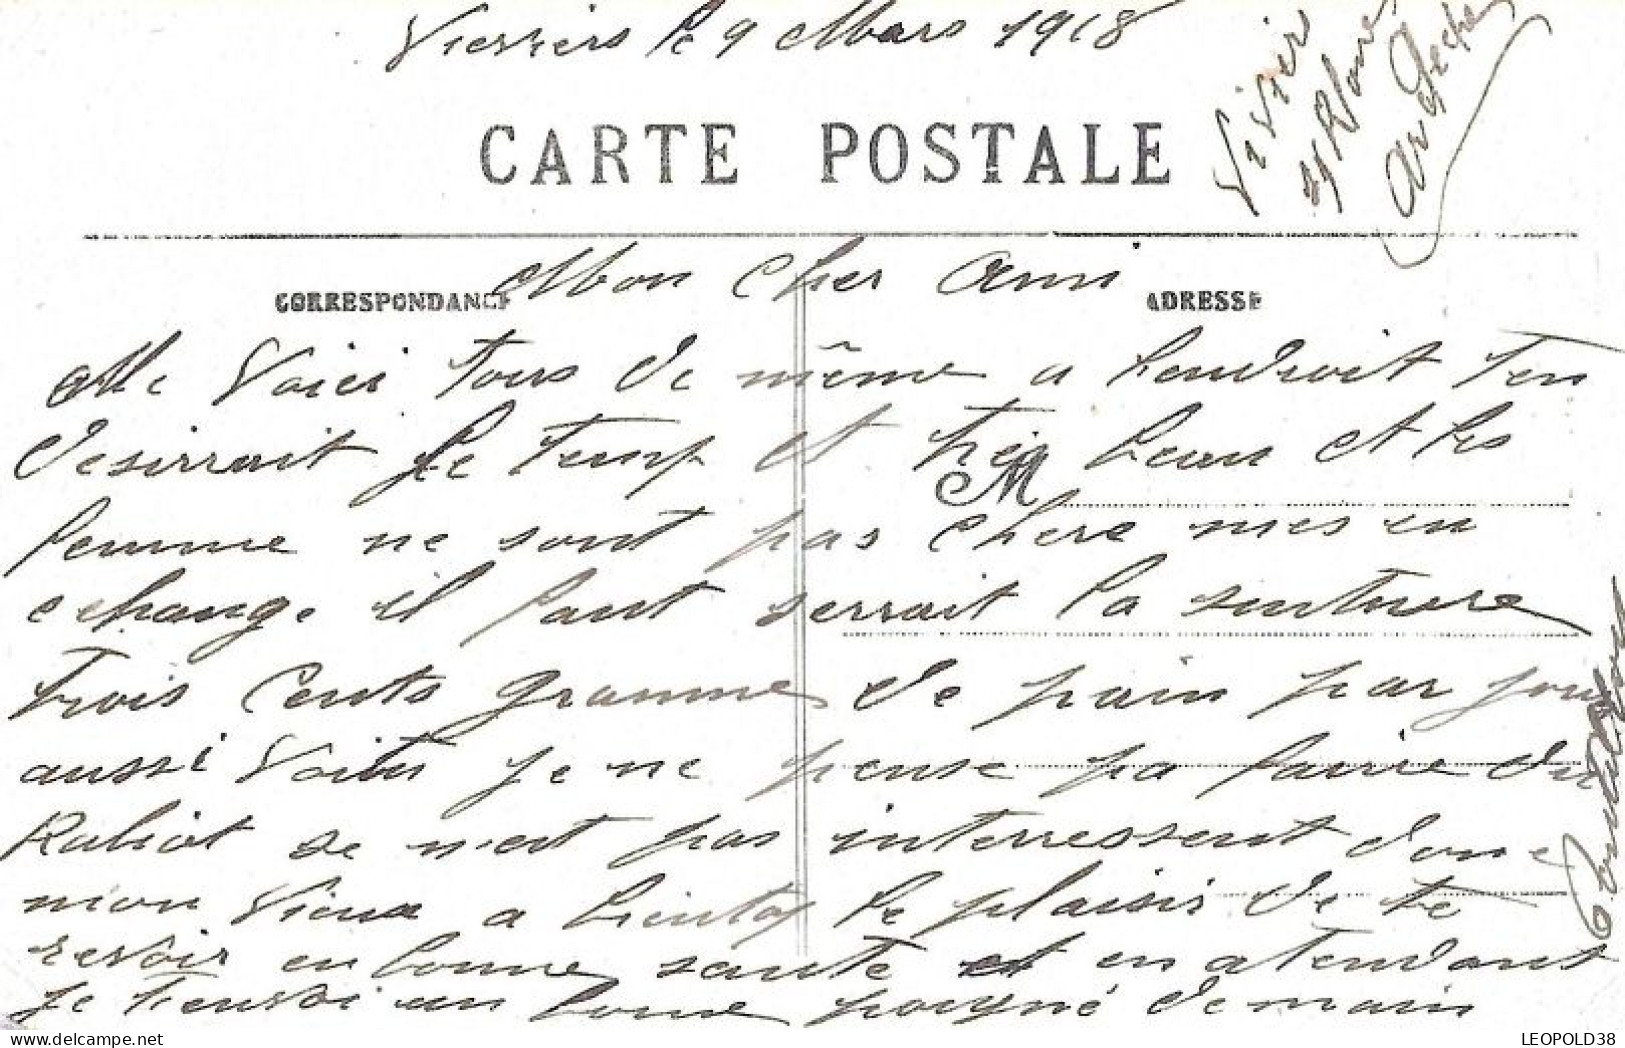 Viviers le 9 Mars 1918
Vivier
s/ Rhone
Ardeche
CARTE POSTALE
Mon Cher Ami
CORRESPONDANCE
ADRESSE
Me Voici tous de même a lendroit ten
desirrait le temp et tres beau et les
M
femme ne sont pas chere mes en
echange il faut serrait la sinture
trois cents gramme de pain par jour
aussi Voitu je ne pense pa faire du
Rabiot se n'est pas interressent donc
mon Vieux a bientot le plaisir de te
revoir en bonne santé et en atendant
je tenvoi un bonne poigné de main
LEOPOLD38